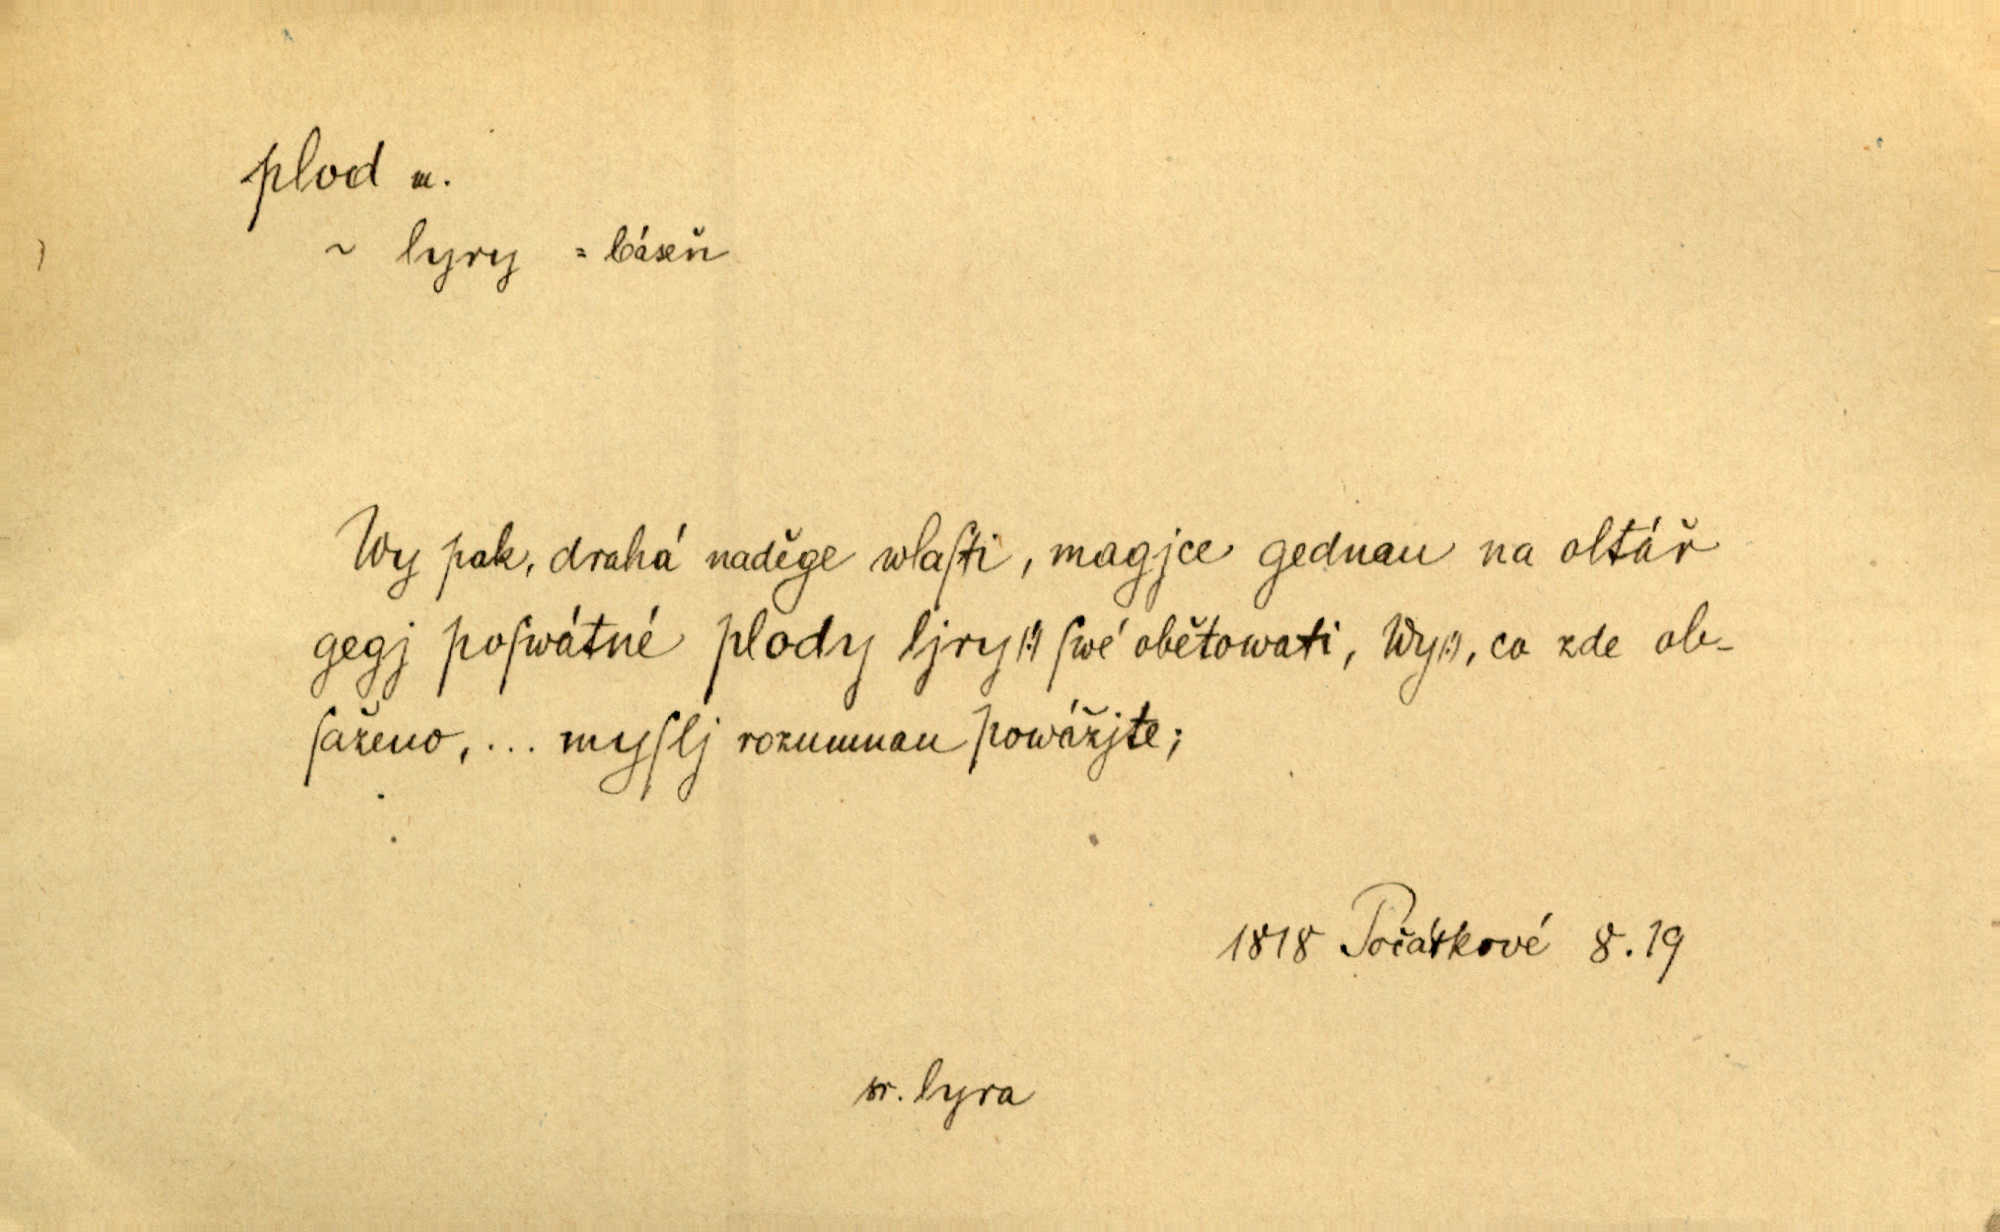 plod m.
~ lyry = báseň
Wy pak, drahá naděge wlaſti, magjce gednau na oltář
gegj poſwátné plody ljry(!) ſwé obětowati, Wy(!), co zde ob-
ſaženo, ... myſlj rozumnau powážjte;
1818 Počátkové 8.19
sr. lyra